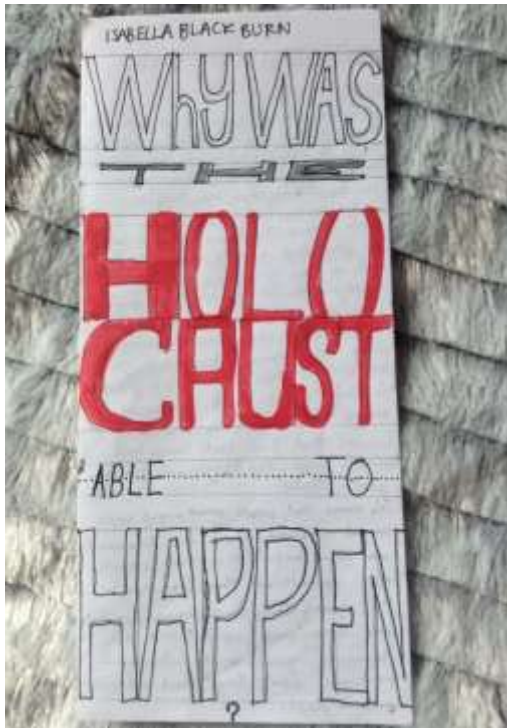 ISABELLA BLACKBURN
Why WAS
THE
HOLO
CAUST
ABLE TO
HAPPEN
?